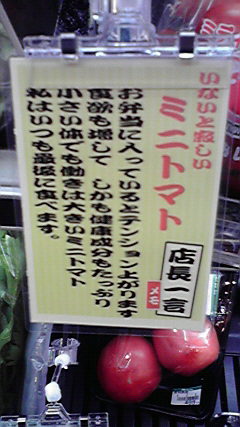 いないと寂しい
ミニトマト
店長一言
メモ
お弁当に入っているとテンション上がります
食欲も増して しかも健康成分もたっぷり
小さい体でも働きは大きいミニトマト
私はいつも最後に食べます。